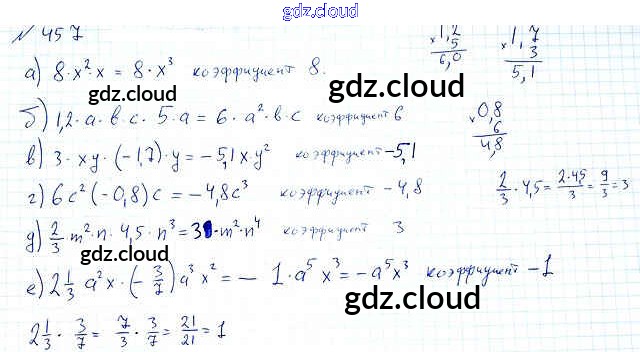 gdz.cloud
№ 457
а) 8·x²·x = 8·x³ коэффициент 8.
gdz.cloud
×1,2
5
6,0
×1,7
3
5,1
gdz.cloud
б) 1,2·a·b·c·5·a = 6·a²·b·c коэффициент 6
gdz.cloud
×0,8
6
4,8
в) 3·xy·(-1,7)·y = -5,1x·y² коэффициент -5,1
г) 6c²(-0,8)c = -4,8c³ коэффициент -4,8
2/3·4,5 = 2·4,5/3 = 9/3 = 3
д) 2/3·m²·n·4,5·n³ = 3·m²·n⁴ коэффициент 3
gdz.cloud
gdz.cloud
е) 2 1/3 a²x·(-3/7)a³x² = -1·a⁵x³ = -a⁵x³ коэффициент -1
gdz.cloud
2 1/3 · 3/7 = 7/3 · 3/7 = 21/21 = 1